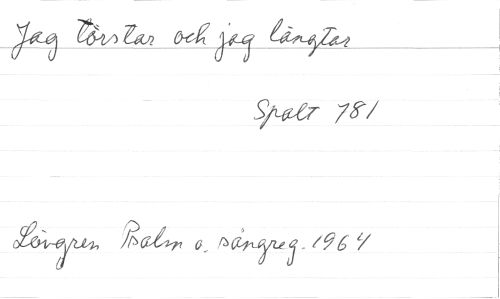 Jag törstar och jag längtar
Spalt 781
Lövgren Psalm o. sångreg. 1964